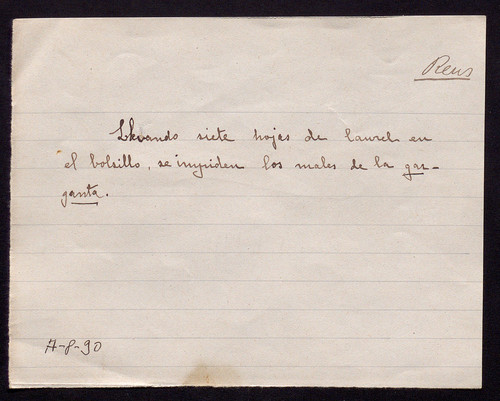 Reus
Llevando siete hojas de laurel en
el bolsillo, se impiden los males de la gar-
ganta.
A-8-90